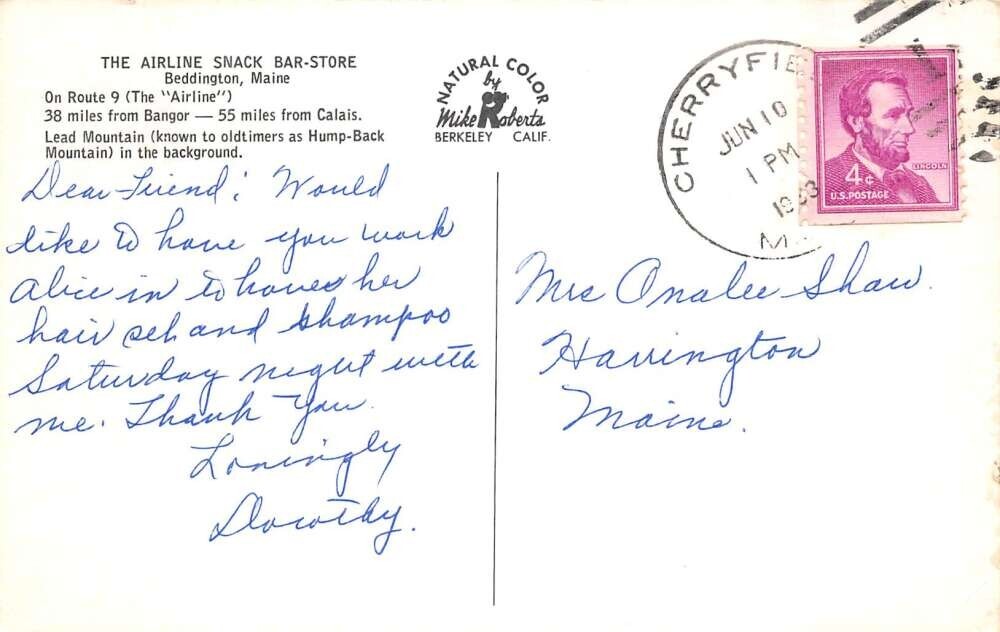 THE AIRLINE SNACK BAR-STORE
Beddington, Maine
On Route 9 (The "Airline")
38 miles from Bangor — 55 miles from Calais.
Lead Mountain (known to oldtimers as Hump-Back
Mountain) in the background.
NATURAL COLOR
by
Mike Roberts
BERKELEY CALIF.
CHERRYFIE
JUN 10
1 PM
1963
M
LINCOLN
4¢
U.S. POSTAGE
Dear Friend; Would
like to have you work
Alice in to have her
hair set and shampoo
Saturday night with
me. Thank You.
Lovingly
Dorothy.
Mrs Onalee Shaw.
Harrington
Maine.